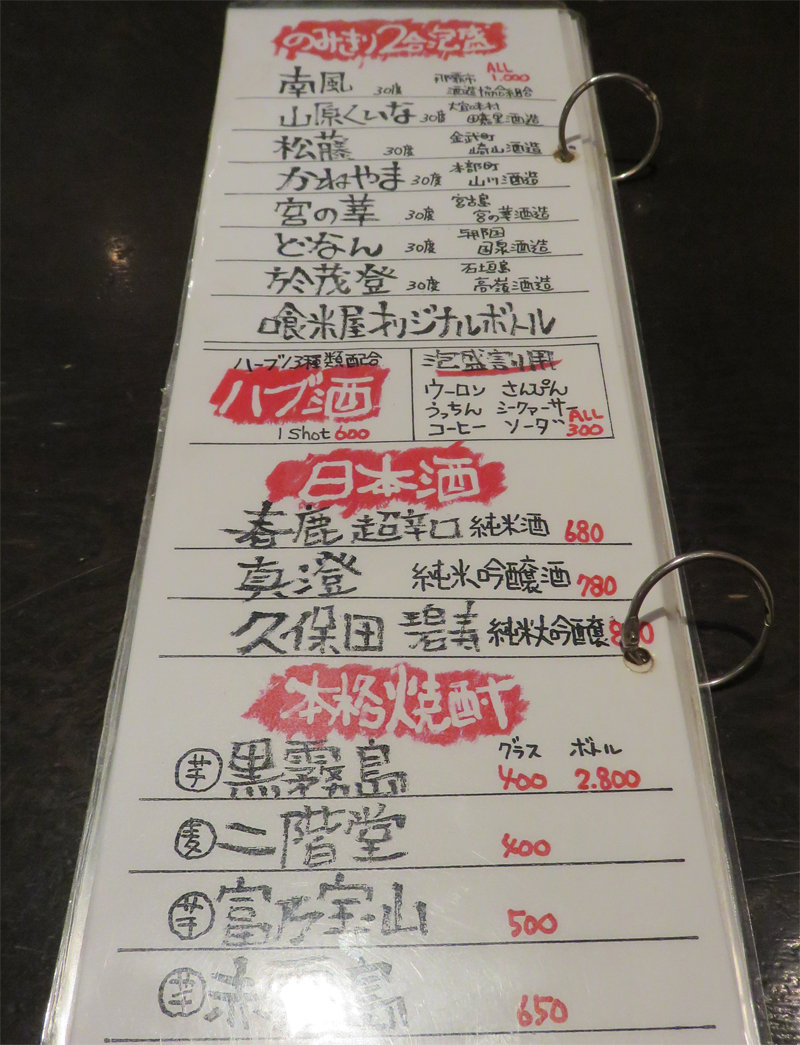 のみきり2合泡盛
ALL 1.000
南風 30度 那覇市 酒造協同組合
山原くいな 30度 大宜味村 田嘉里酒造
松藤 30度 金武町 崎山酒造
かねやま 30度 本部町 山川酒造
宮の華 30度 宮古島 宮の華酒造
どなん 30度 与那国 国泉酒造
於茂登 30度 石垣島 高嶺酒造
喰米屋オリジナルボトル
ハーブ13種類配合
ハブ酒
1 Shot 600
泡盛割り用
ウーロン さんぴん
うっちん シークァーサー
コーヒー ソーダ ALL 300
日本酒
春鹿 超辛口 純米酒 680
真澄 純米吟醸酒 780
久保田 碧寿 純米大吟醸
本格焼酎
グラス ボトル
芋 黒霧島 400 2.800
麦 二階堂 400
芋 富乃宝山 500
芋 赤 島 650